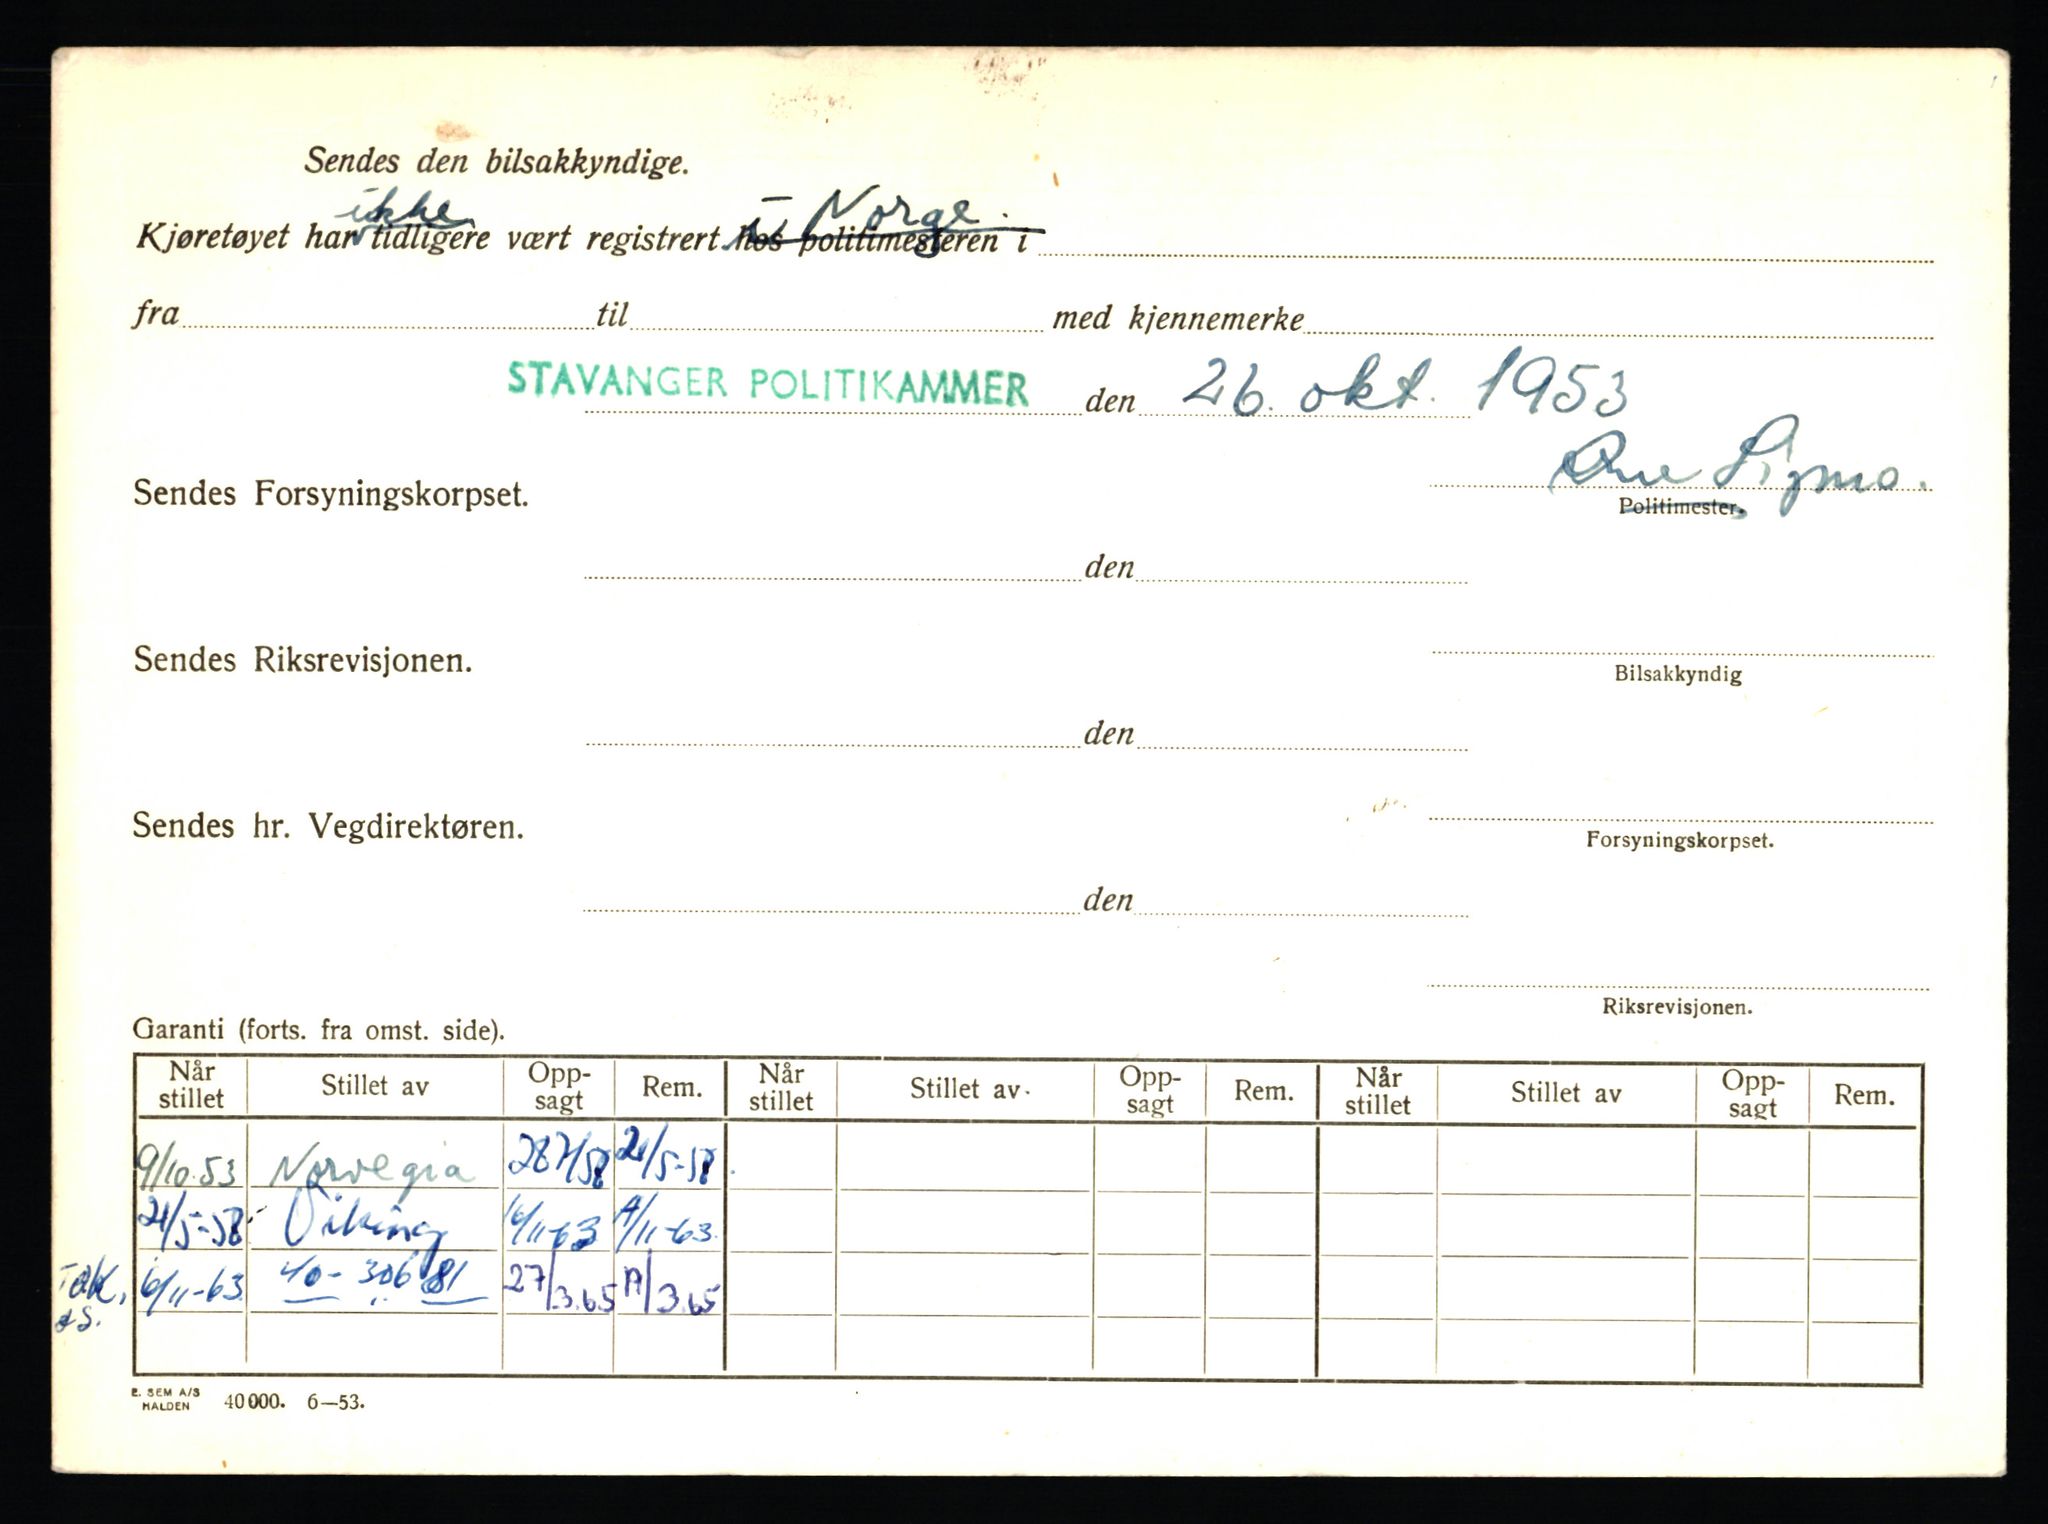 Sendes den bilsakkyndige.
ikke i Norge.
Kjøretøyet har tidligere vært registrert hos politimesteren i
fra til med kjennemerke
STAVANGER POLITIKAMMER den 26. okt. 1953
Sendes Forsyningskorpset.
Politimester.
den
Sendes Riksrevisjonen.
Bilsakkyndig
den
Sendes hr. Vegdirektøren.
Forsyningskorpset.
den
Riksrevisjonen.
Garanti (forts. fra omst. side).
Når stillet Stillet av Opp-sagt Rem. Når stillet Stillet av. Opp-sagt Rem. Når stillet Stillet av Opp-sagt Rem.
9/10.53 Norvegia 287/58 21/5-58.
21/5-58 Viking 16/11-63 A/11-63.
6/11-63 40-306181 27/3.65 A/3.65
E. SEM A/S
HALDEN 40000. 6—53.